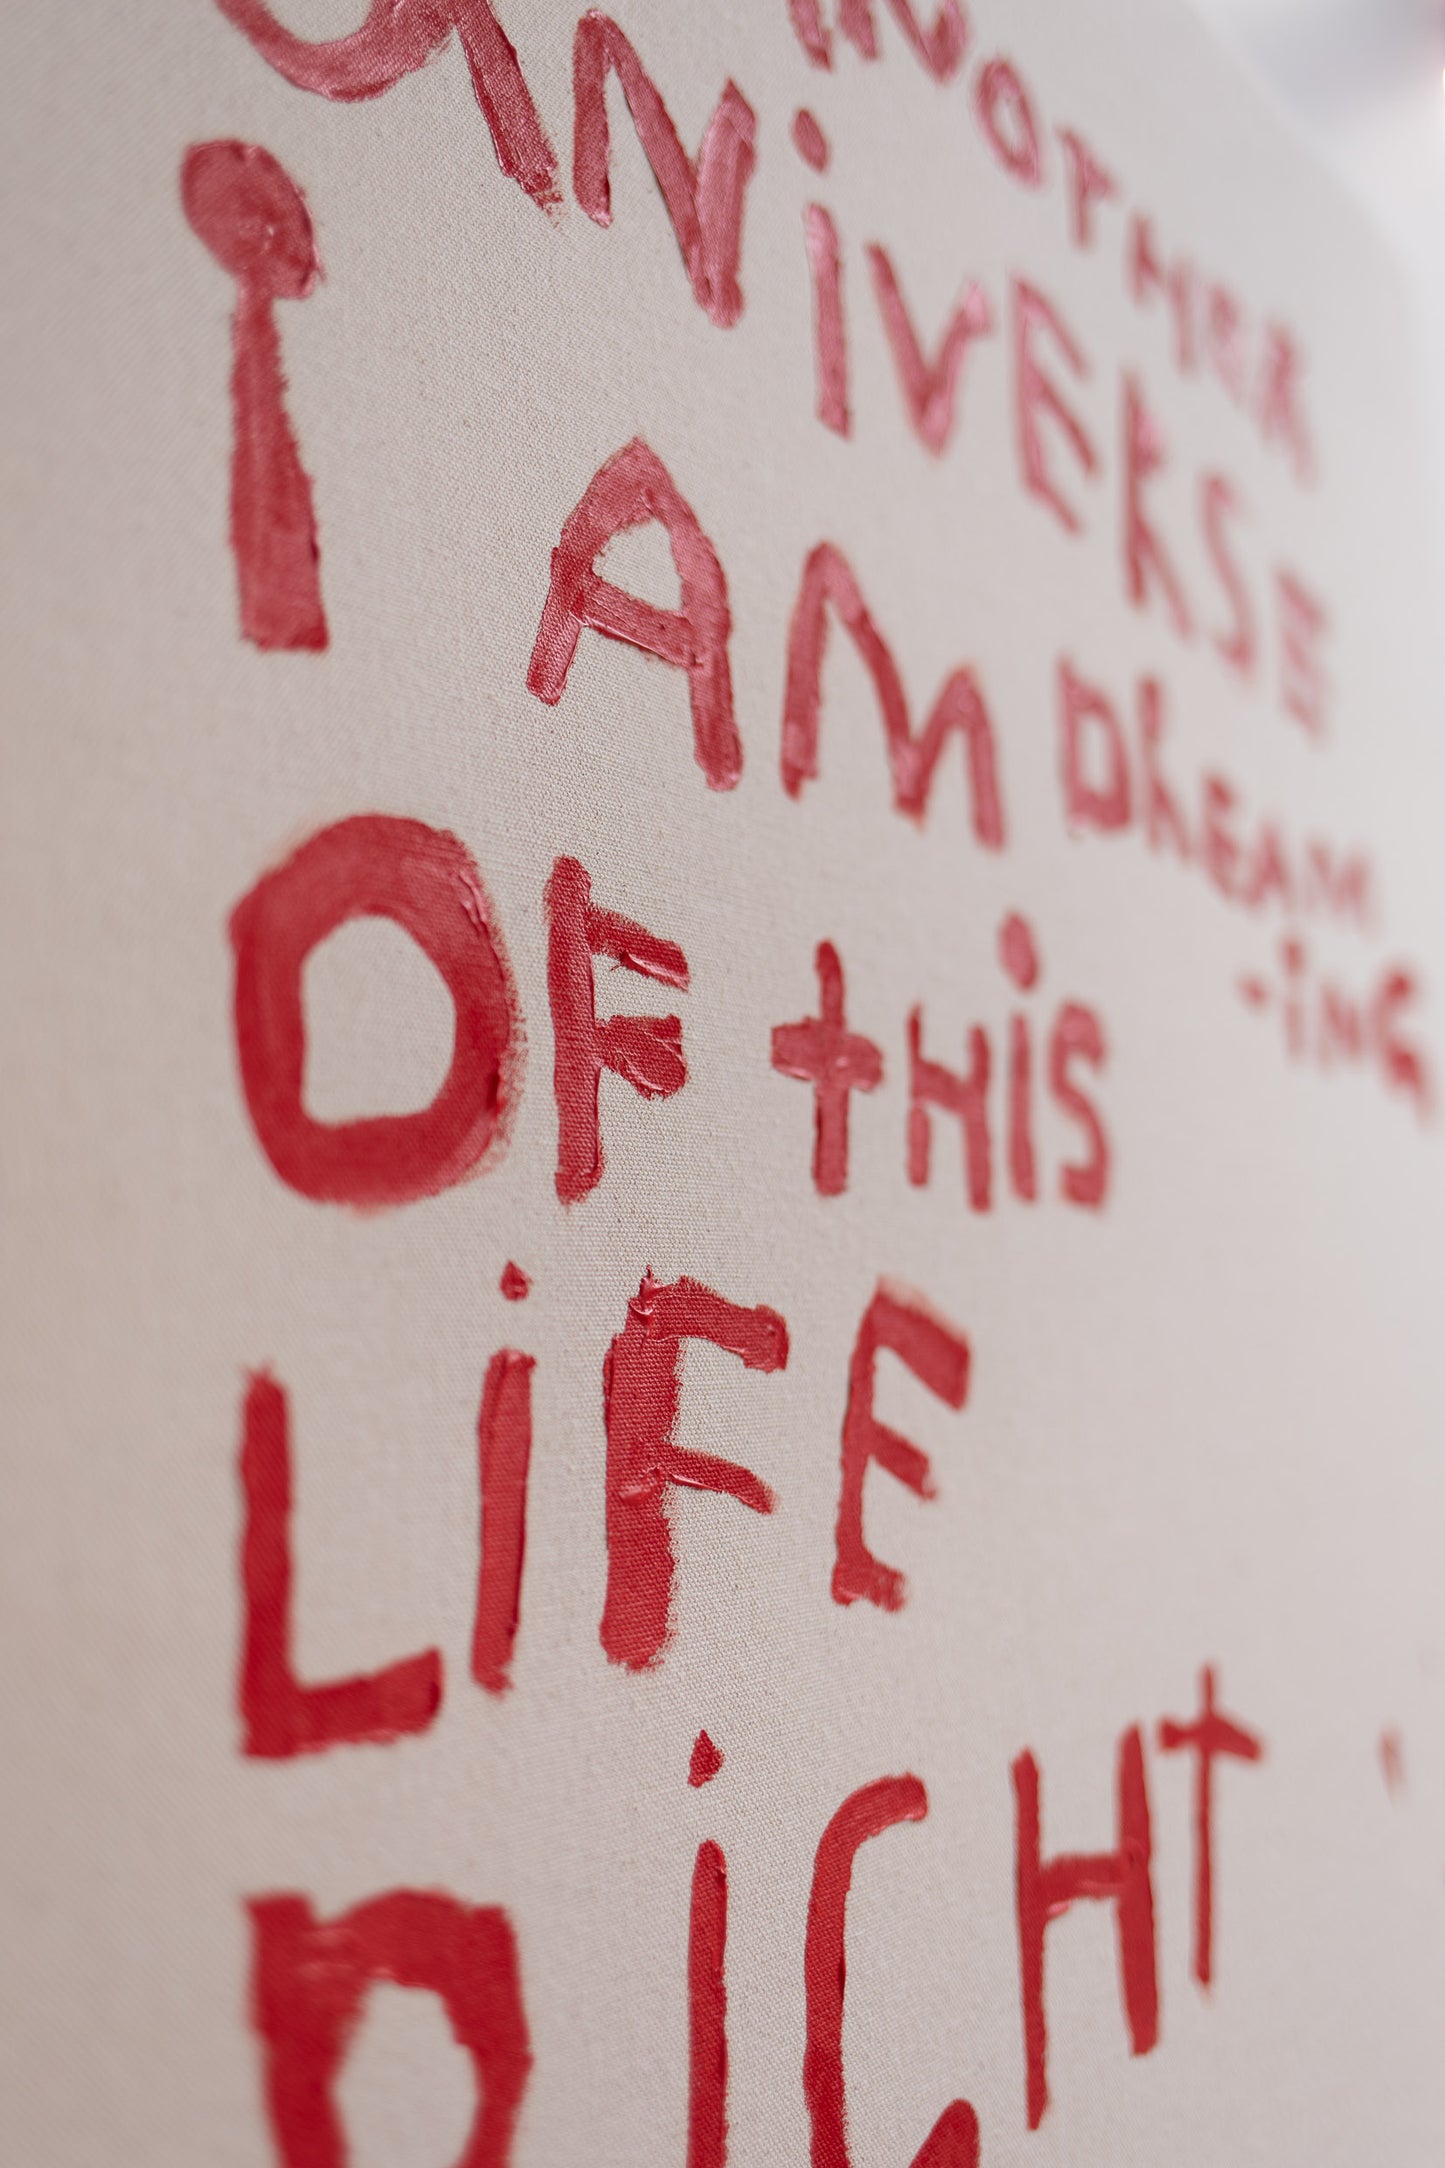 ANOTHER
UNiVERSE
i AM DREAM
-iNG
OF tHiS
LiFE
RiGHt